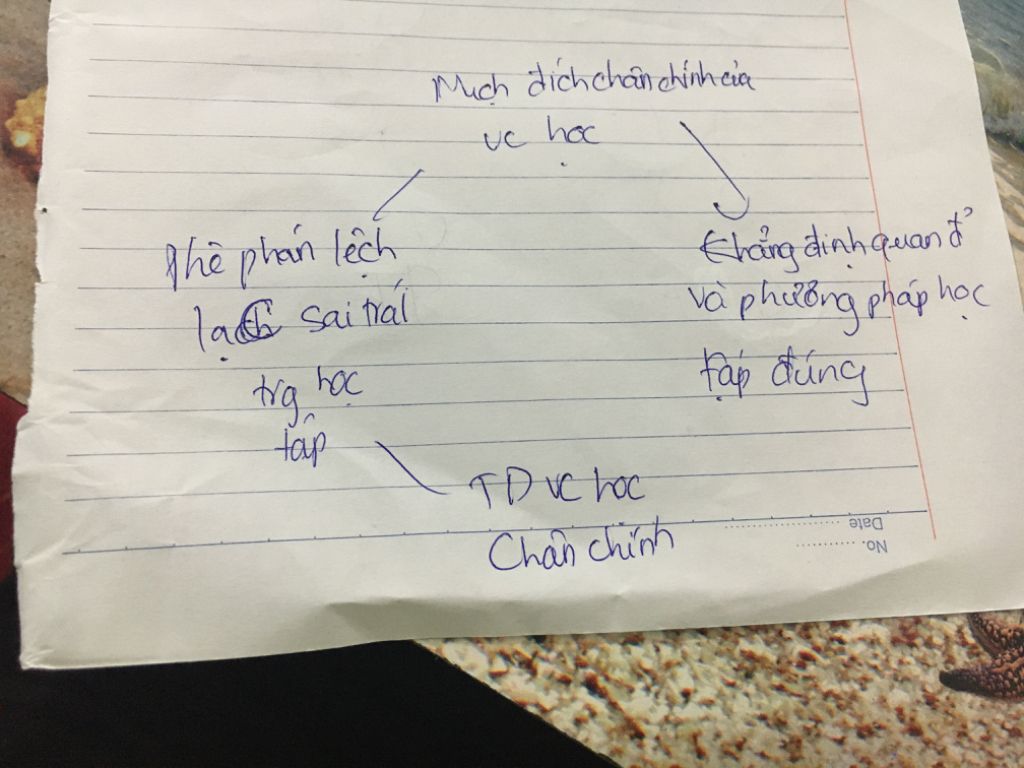 Mục đích chân chính của
vc học
Phê phán lệch
lạc sai trái
trg học
tập
Khẳng định quan đ'
và phương pháp học
tập đúng
TD vc học
Chân chính
Date
No.